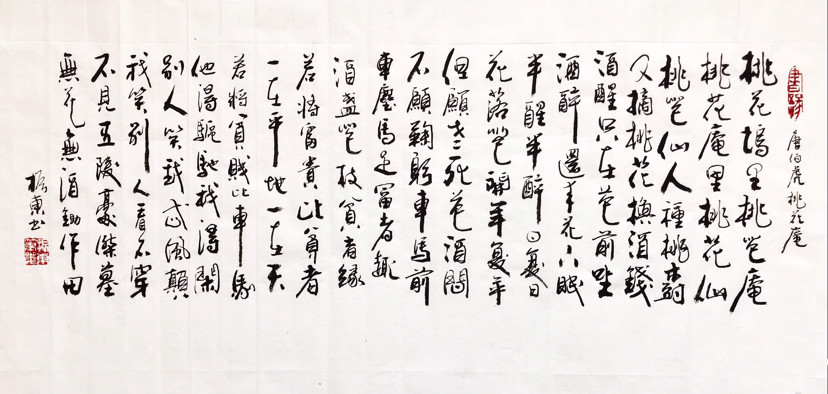 唐伯虎桃花庵
桃花塢里桃花庵
桃花庵里桃花仙
桃花仙人種桃樹
又摘桃花換酒錢
酒醒只在花前坐
酒醉還來花下眠
半醒半醉日復日
花落花開年復年
但願老死花酒間
不願鞠躬車馬前
車塵馬足富者趣
酒盞花枝貧者緣
若將富貴比貧者
一在平地一在天
若將貧賤比車馬
他得驅馳我得閑
別人笑我忒風顛
我笑別人看不穿
不見五陵豪傑墓
無花無酒鋤作田
振東書